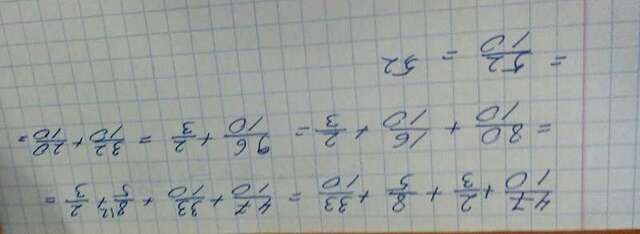 47/10 + 2/3 + 8/5 + 33/10 = 47/10 + 33/10 + 8/5 \2 + 2/3 =
= 80/10 + 16/10 + 2/3 = 96/10 + 2/3 = 32/10 + 20/10 =
= 52/10 = 52